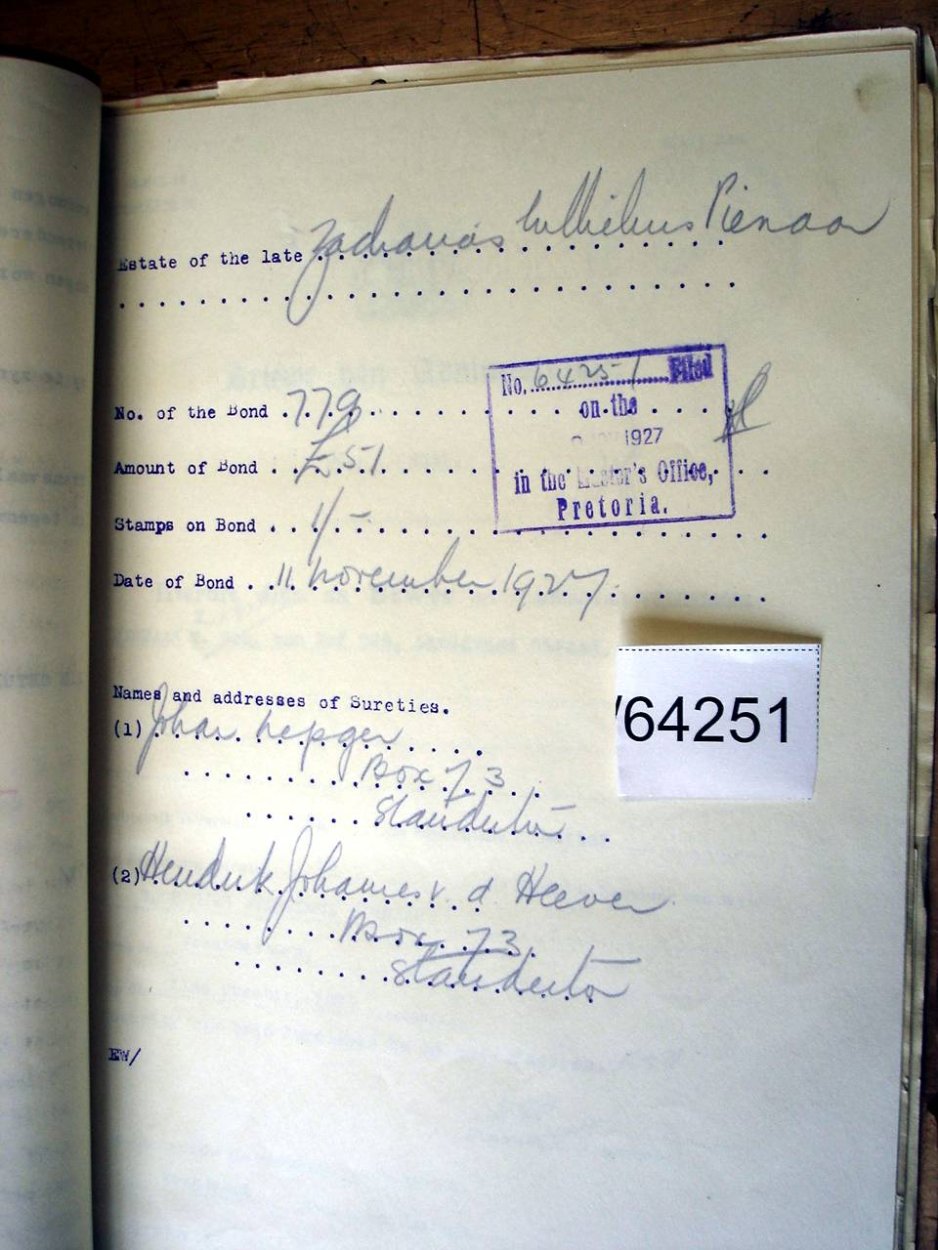 Estate of the late Zacharias Wilhelmus Pienaar
No. 64251 Filed
on the
1927
in the Master's Office,
Pretoria.
No. of the Bond 779
Amount of Bond £51
Stamps on Bond 1/-
Date of Bond 11 november 1927
/64251
Names and addresses of Sureties.
(1) Johan
Box 73
Standerton
(2) Hendrik Johannes v. d Heever
Box 73
Standerton
EW/